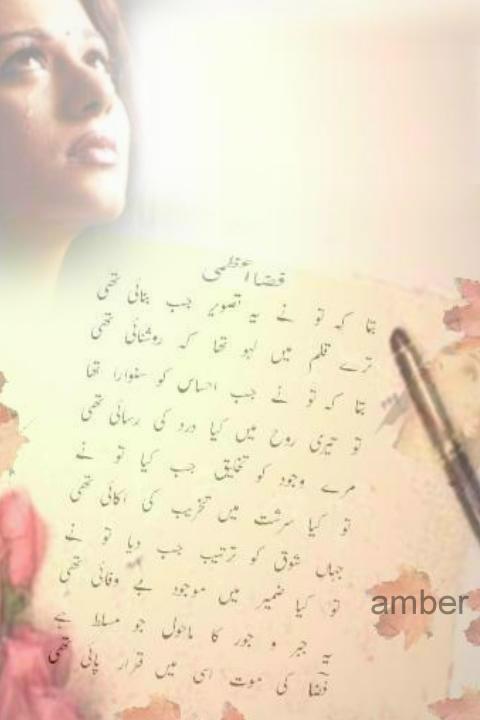 قضا اعظمی
بتا کہ تو نے یہ تصویر جب بنائی تھی
ترے قلم میں لہو تھا کہ روشنائی تھی
بتا کہ تو نے جب احساس کو سنوارا تھا
تو تیری روح میں کیا درد کی رسائی تھی
مرے وجود کو تخلیق جب کیا تو نے
تو کیا سرشت میں تخریب کی اکائی تھی
جہاں شوق کو ترتیب جب دیا تو نے
تو کیا ضمیر میں موجود بے وفائی تھی
یہ جبر و جور کا ماحول جو مسلط ہے
قضا کی موت اسی میں قرار پائی تھی
amber